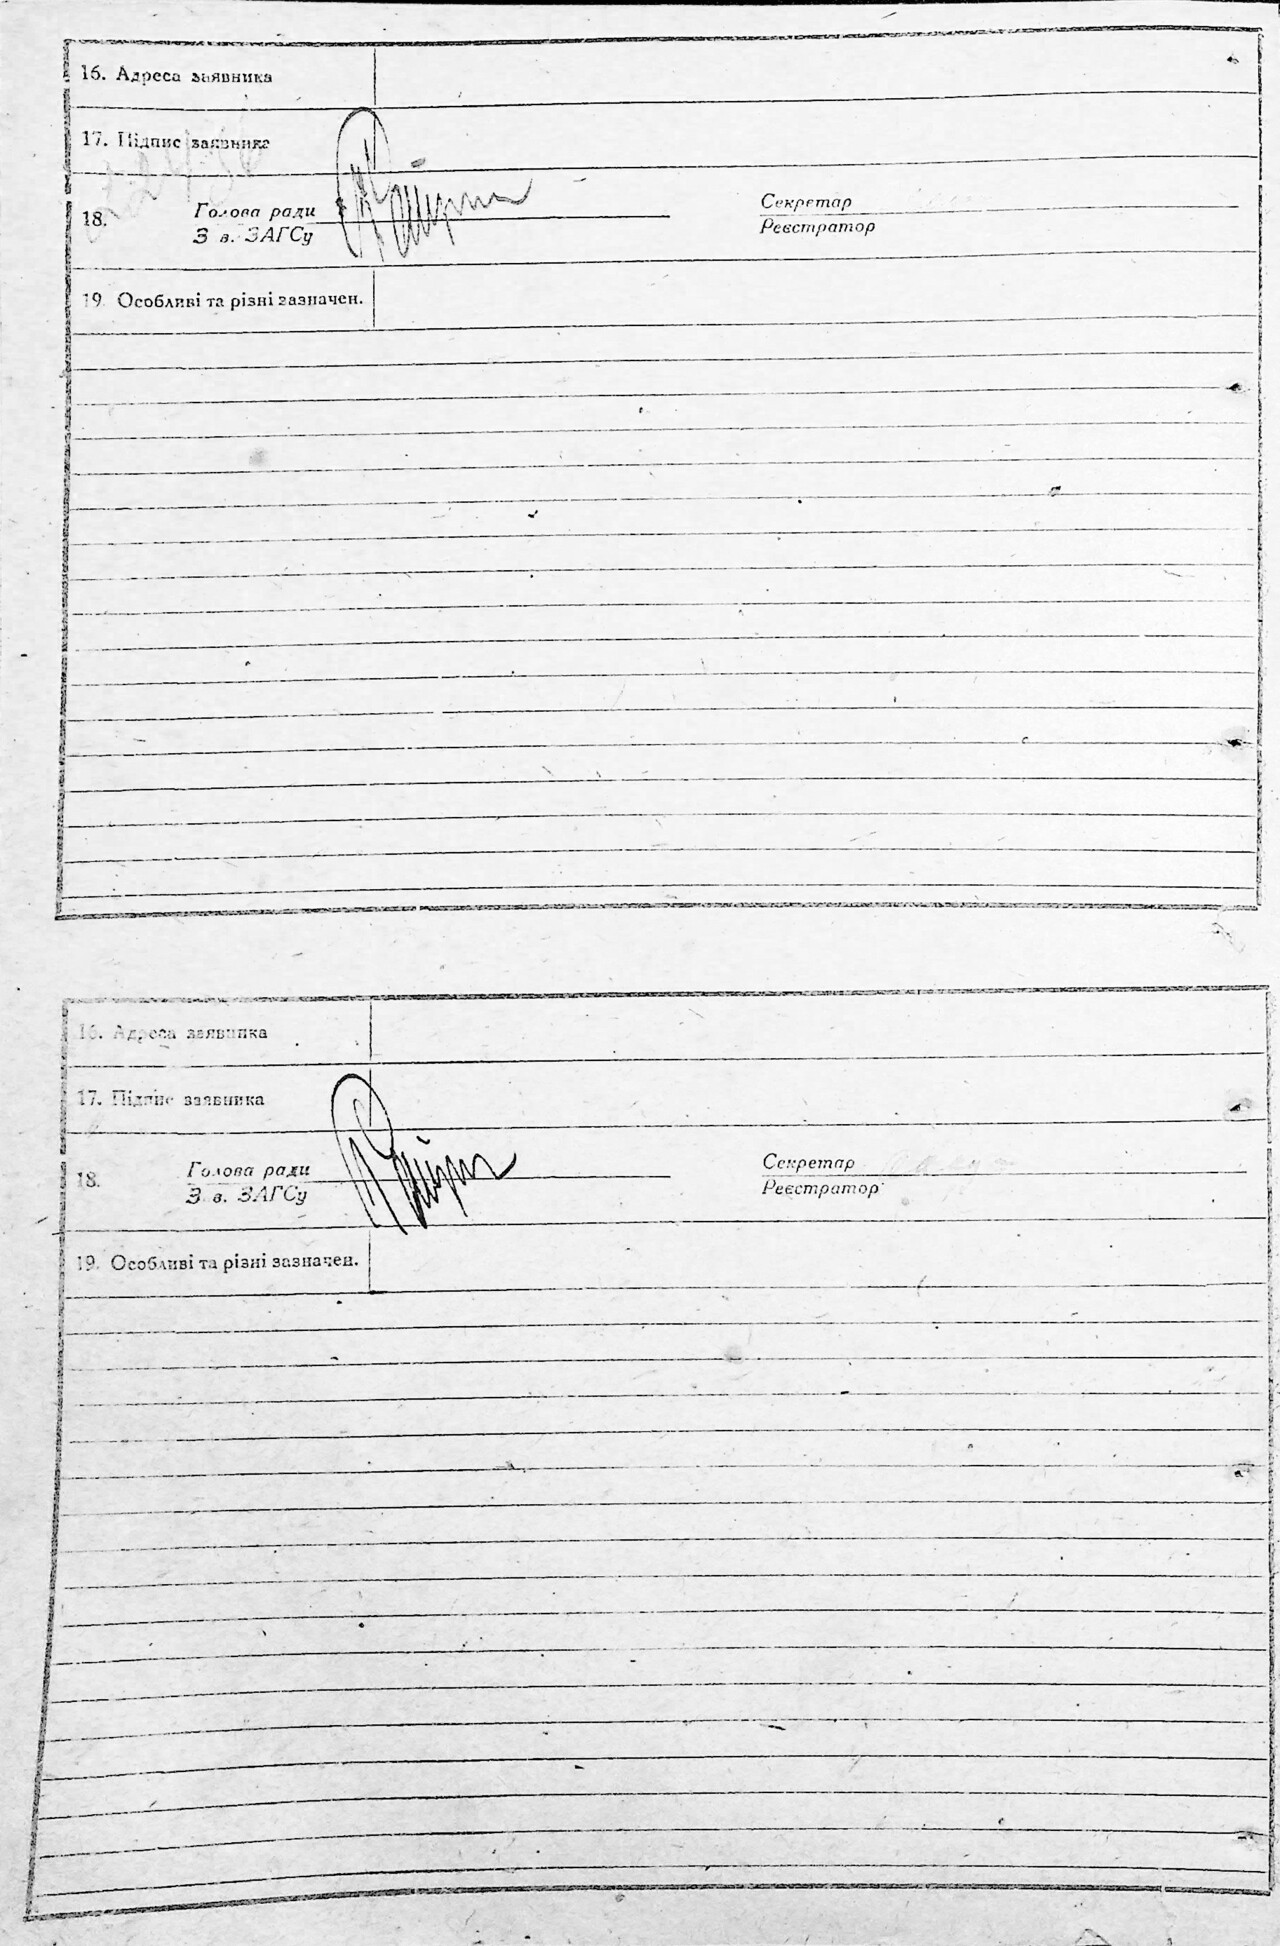 16. Адреса заявника
17. Підпис заявника
18. Голова ради
З в. ЗАГСу
Секретар
Реєстратор
19. Особливі та різні зазначен.
16. Адреса заявника
17. Підпис заявника
18. Голова ради
З. в. ЗАГСу
Секретар
Реєстратор
19. Особливі та різні зазначен.